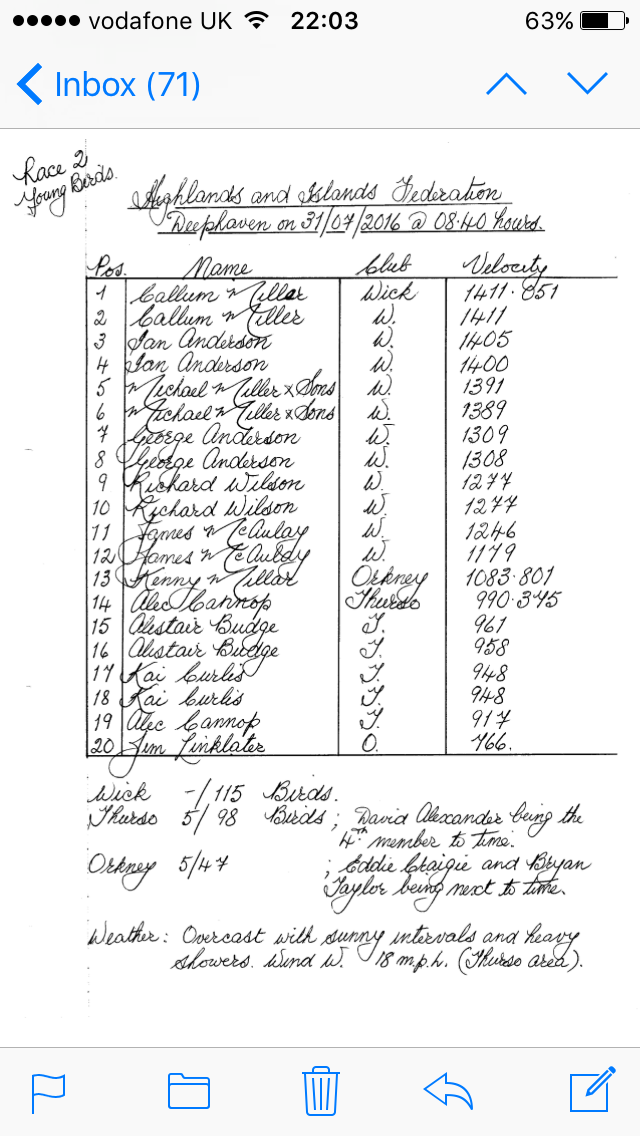 vodafone UK 22:03 63%
Inbox (71)
Race 2
Young Birds.
Highlands and Islands Federation
Deephaven on 31/07/2016 @ 08.40 hours.
Pos. Name Club Velocity
1 Callum Miller Wick 1411.851
2 Callum Miller W. 1411
3 Ian Anderson W. 1405
4 Ian Anderson W. 1400
5 Michael Miller x Sons W. 1391
6 Michael Miller x Sons W. 1389
7 George Anderson W. 1309
8 George Anderson W. 1308
9 Richard Wilson W. 1277
10 Richard Wilson W. 1277
11 James McAulay W. 1246
12 James McAulay W. 1179
13 Kenny Millar Orkney 1083.801
14 Alec Cannop Thurso 990.375
15 Alistair Budge T. 961
16 Alistair Budge T. 958
17 Kai Curtis T. 948
18 Kai Curtis T. 948
19 Alec Cannop T. 917
20 Jim Linklater O. 766.
Wick -/115 Birds.
Thurso 5/98 Birds ; David Alexander being the
4th member to time.
Orkney 5/47 ; Eddie Craigie and Bryan
Taylor being next to time.
Weather: Overcast with sunny intervals and heavy
showers. Wind W. 18 m.p.h. (Thurso area).